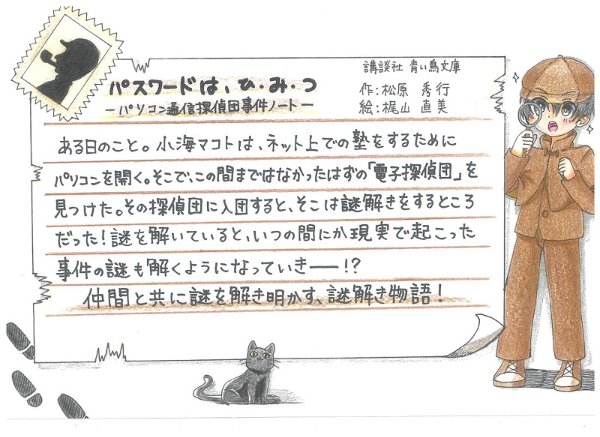 パスワードは、ひ・み・つ
ーパソコン通信探偵団事件ノートー
講談社 青い鳥文庫
作:松原 秀行
絵:梶山 直美
ある日のこと。小海マコトは、ネット上での塾をするために
パソコンを開く。そこで、この間まではなかったはずの「電子探偵団」を
見つけた。その探偵団に入団すると、そこは謎解きをするところ
だった！謎を解いていると、いつの間にか現実で起こった
事件の謎も解くようになっていき――!?
仲間と共に謎を解き明かす、謎解き物語！